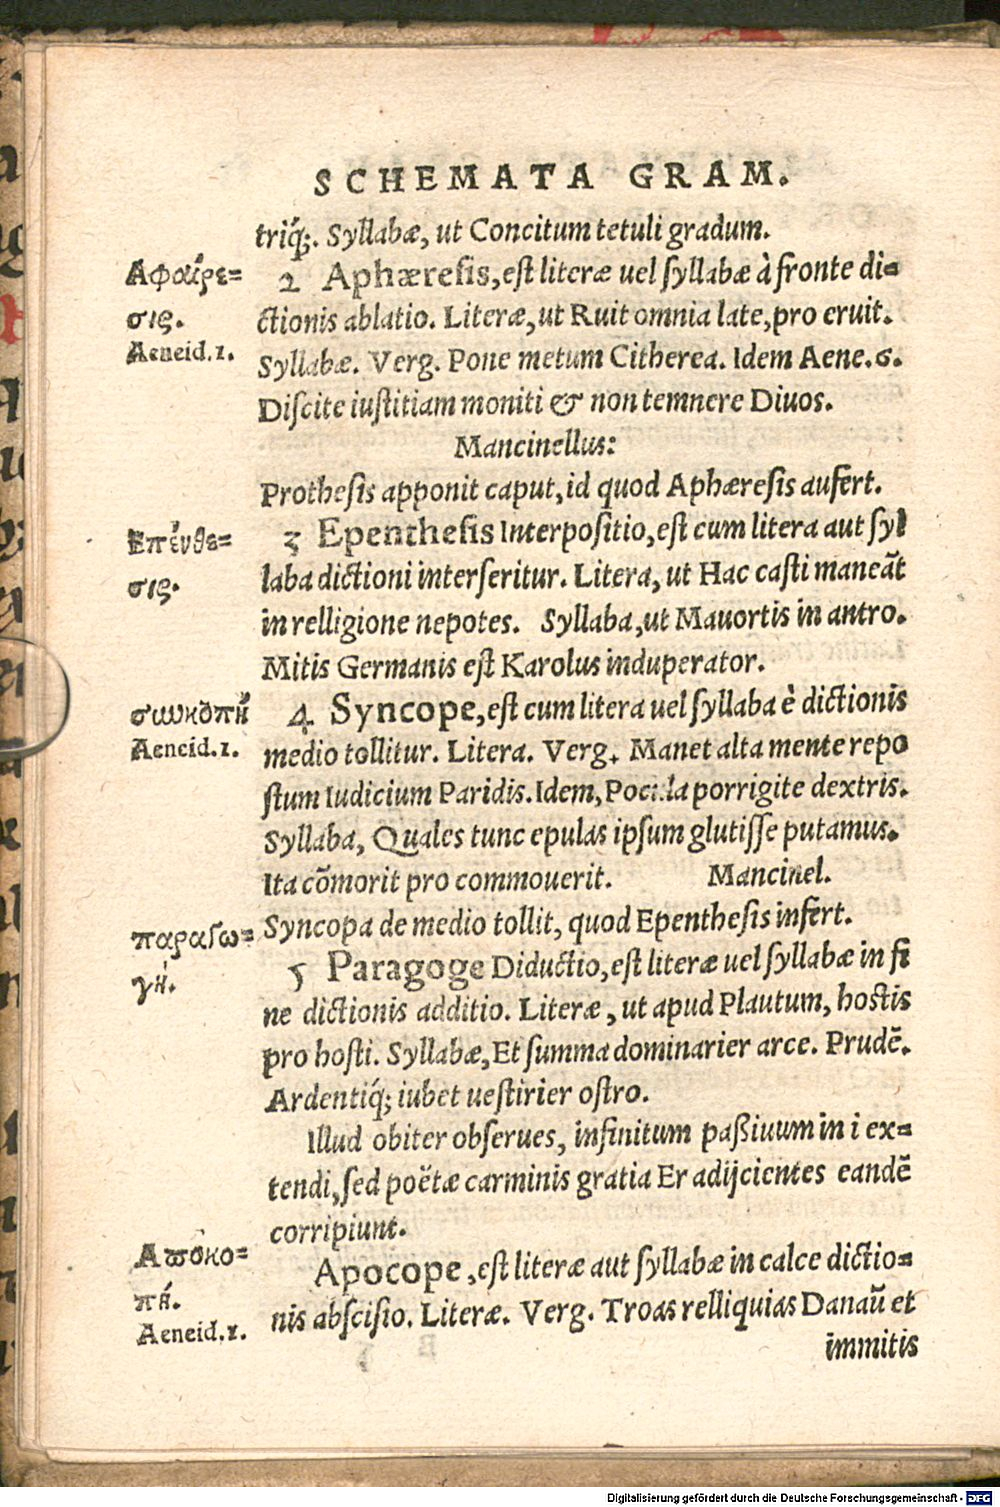 SCHEMATA GRAM.
triq́;. Syllabæ, ut Concitum tetuli gradum.
Αφαίρε=
2 Aphæresis, est literæ uel syllabæ à fronte di=
σις.
ctionis ablatio. Literæ, ut Ruit omnia late, pro eruit.
Aeneid.1.
Syllabæ. Verg. Pone metum Citherea. Idem Aene.6.
Discite iustitiam moniti & non temnere Diuos.
Mancinellus:
Prothesis apponit caput, id quod Aphæresis aufert.
Επένθε=
3 Epenthesis Interpositio, est cum litera aut syl
σις.
laba dictioni interseritur. Litera, ut Hac casti maneãt
in relligione nepotes. Syllaba, ut Mauortis in antro.
Mitis Germanis est Karolus induperator.
συνκοπὴ
4 Syncope, est cum litera uel syllaba è dictionis
Aeneid.1.
medio tollitur. Litera. Verg. Manet alta mente repo
stum Iudicium Paridis. Idem, Pocula porrigite dextris.
Syllaba, Quales tunc epulas ipsum glutisse putamus.
Ita cõmorit pro commouerit. Mancinel.
Syncopa de medio tollit, quod Epenthesis infert.
παραγω=
5 Paragoge Diductio, est literæ uel syllabæ in fi
γή.
ne dictionis additio. Literæ, ut apud Plautum, hostis
pro hosti. Syllabæ, Et summa dominarier arce. Prudẽ.
Ardentiq́; iubet uestirier ostro.
Illud obiter obserues, infinitum paßiuum in i ex=
tendi, sed poëtæ carminis gratia Er adijcientes eandẽ
corripiunt.
Αποκο=
Apocope, est literæ aut syllabæ in calce dictio=
πή.
nis abscisio. Literæ. Verg. Troas relliquias Danaũ et
Aeneid.1.
immitis
Digitalisierung gefördert durch die Deutsche Forschungsgemeinschaft - DFG